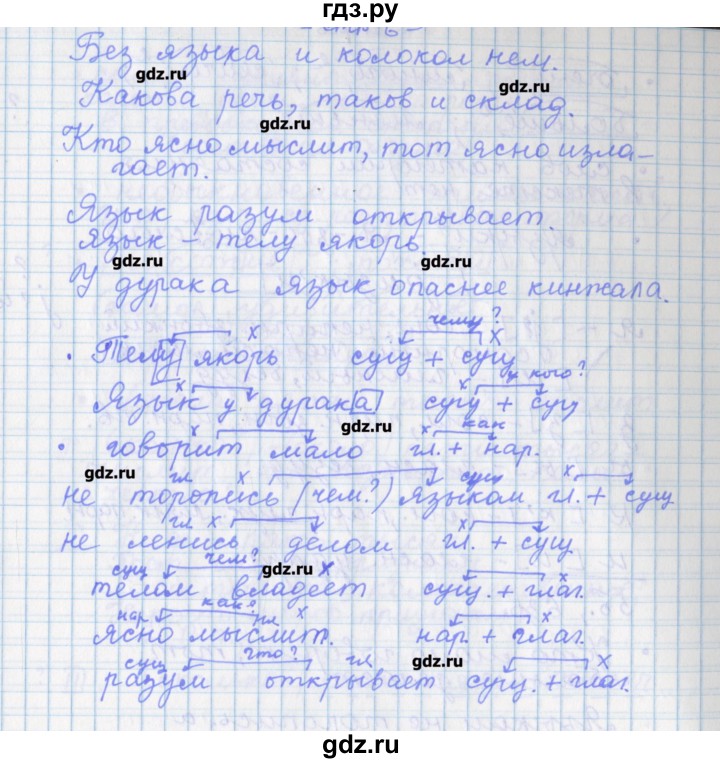 гдз.ру
Без языка и колокол нем.
gdz.ru
Какова речь, таков и склад.
gdz.ru
Кто ясно мыслит, тот ясно изла-
гает.
Язык разум открывает.
Язык – телу якорь.
gdz.ru gdz.ru
У дурака язык опаснее кинжала.
х чему? х
Телу якорь сущ + сущ
х х у кого?
Язык у дурака сущ + сущ
gdz.ru
х х как
говорит мало гл. + нар.
gdz.ru
гл. х сущ х
не торопись (чем?) языком гл. + сущ
гл х х
не ленись делом гл. + сущ
сущ чем? х х
gdz.ru
телом владеет сущ. + глаг.
нар. как? гл х х
ясно мыслит. нар. + глаг.
gdz.ru
сущ что? гл. х
разум открывает сущ. + глаг.
gdz.ru